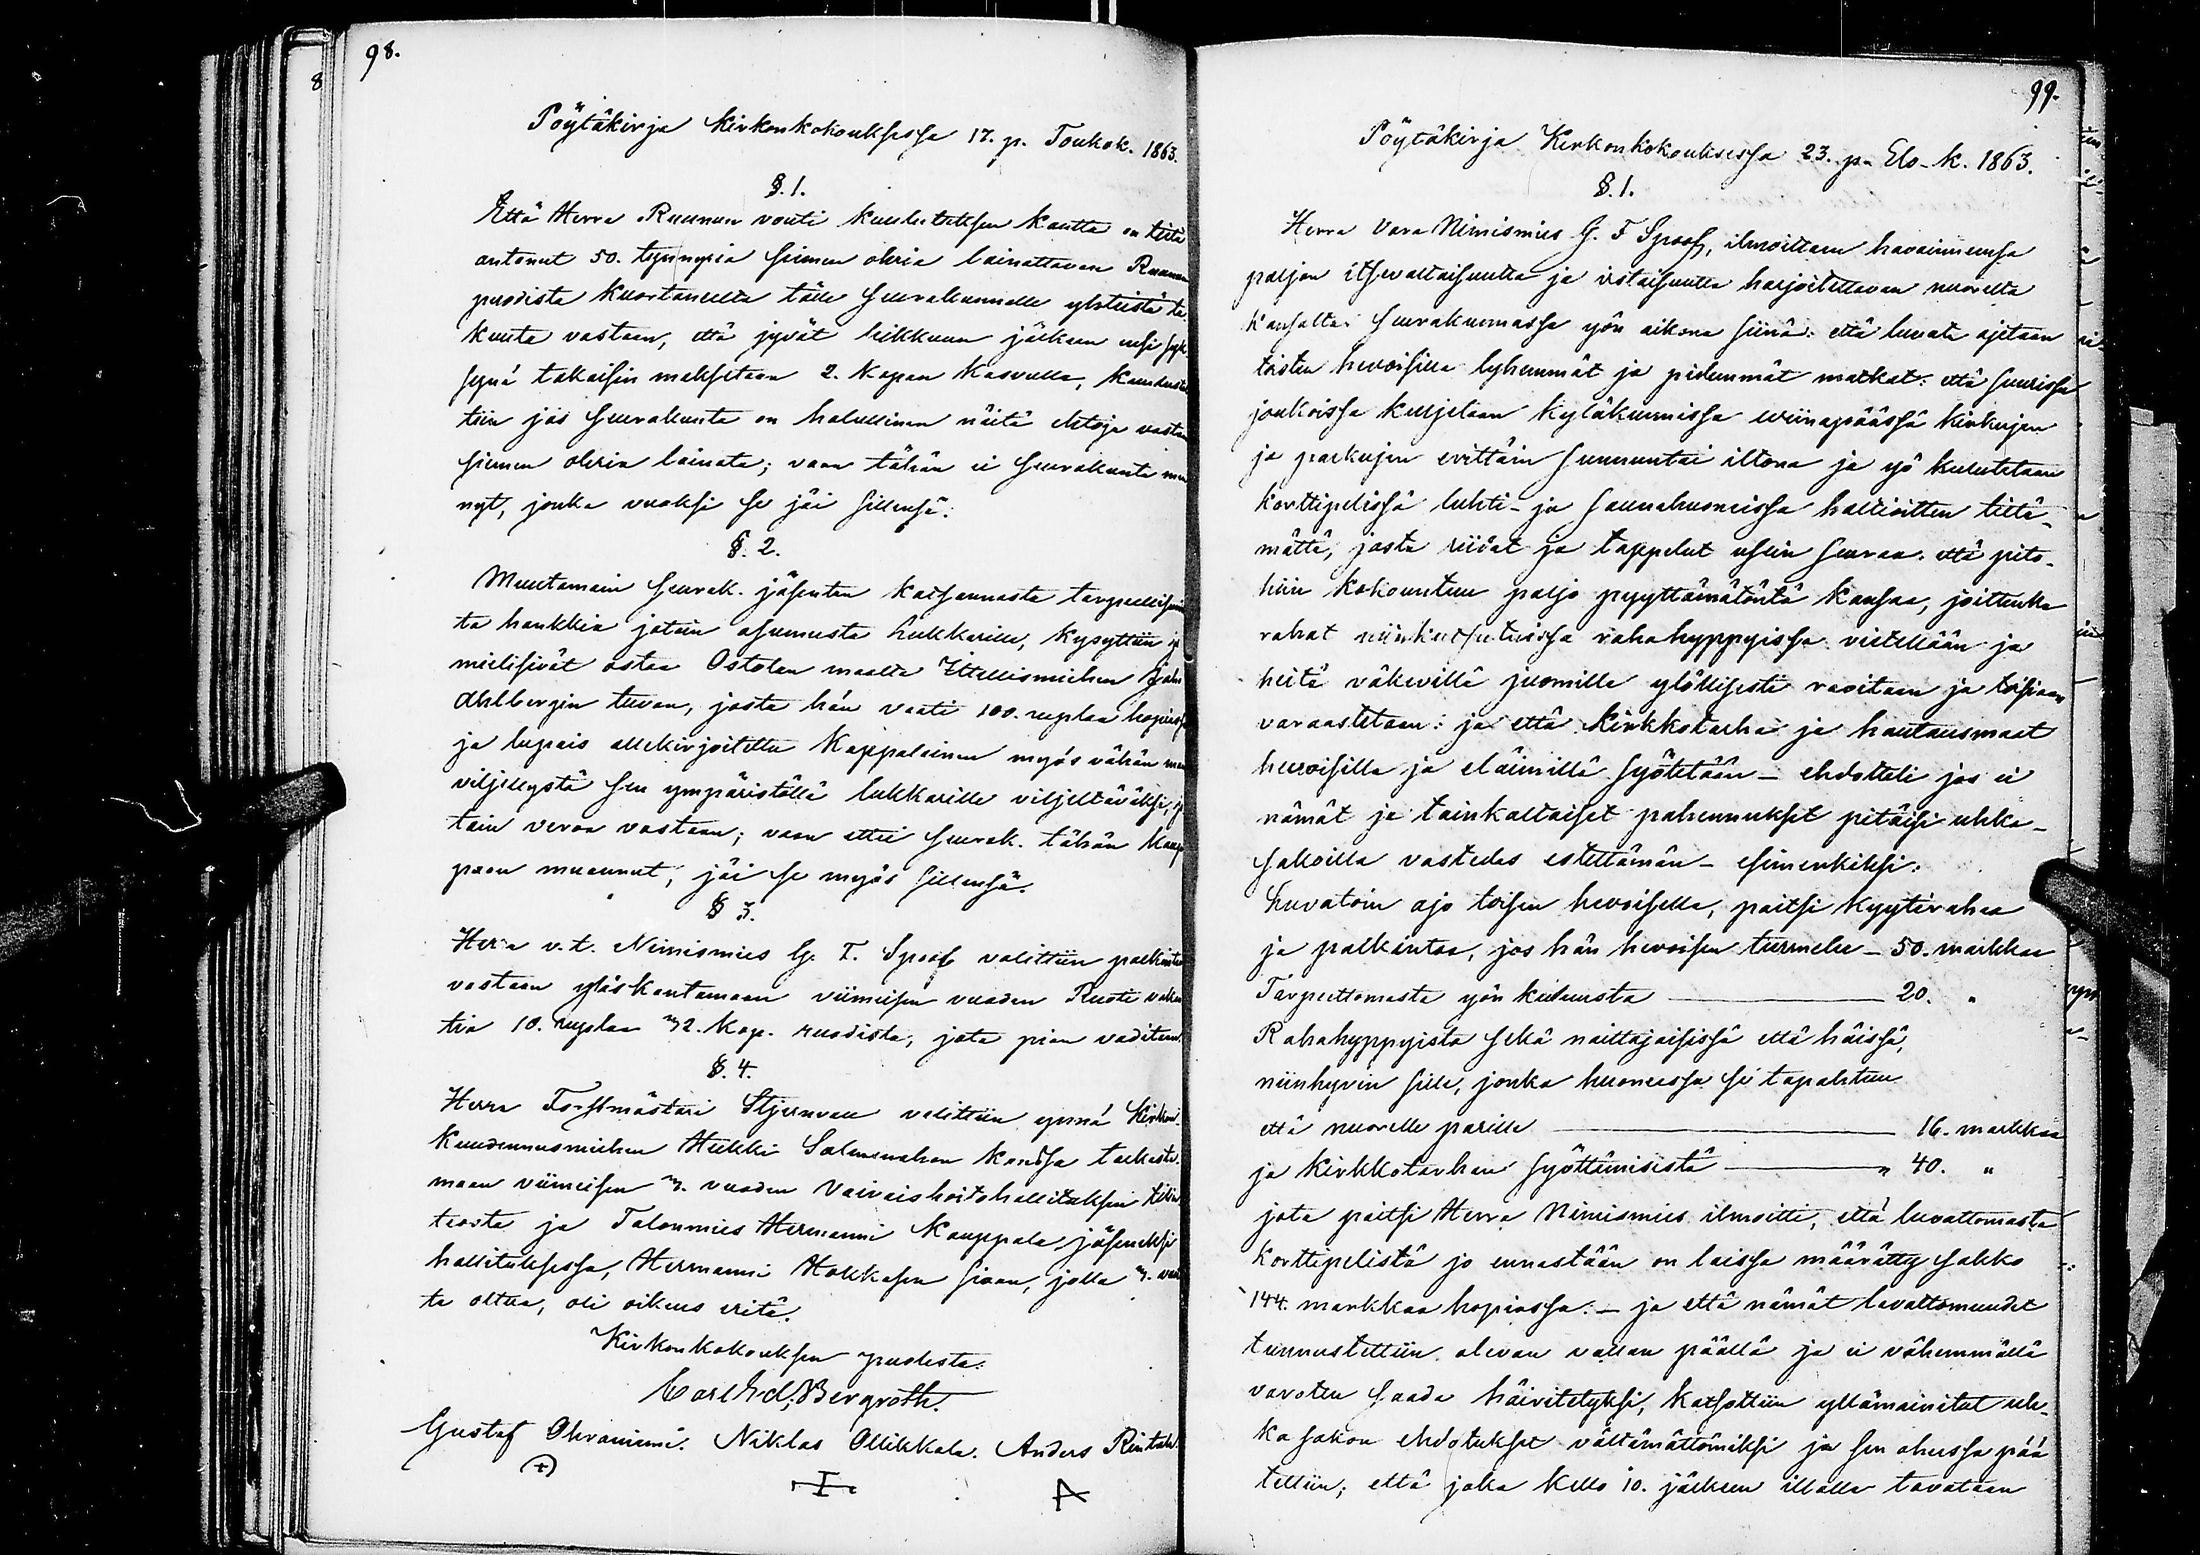 98.
Pöytäkirja Kirkonkokouksessa 17. p. Toukok. 1863.
§. 1.
Että Herra Ruunun vouti kuulutuksen kautta on tietä
antanut 50. tynnyria siemen ohria lainattavan Ruunun
puodista Kuortaneella tälle seurakunnalle yhteistä ta-
kuuta vastaan, että jyvät leikkuun jälkeen ensi syk
synä takaisin maksetaan 2. Kapan kasvulla, kuulust
tiin jos seurakunta on halullinen näitä ehtoja vastan
siemen ohria lainata; vaan tähän ei seurakunta mu
nyt, jonka vuoksi se jäi sillensä.
§. 2.
Muutamain seurak. jäsenten katsannosta tarpeellisem
ta hankkia jotain asumusta lukkarille, kysyttiin
mielisivät ostaa Ostolan maalla Itellismiehen Joh
Ahlbergin tuvan, josta hän vaati 100. ruplaa hopias
ja lupais allekirjoitettu Kappalainen myös vähän maa
viljellystä sen ympäristöllä lukkarille viljeltäväksi,
tain veroa vastaan; vaan ettei seurak. tähän kaup
paan muununt, jäi se myös sillensä.
§ 3.
Herra v. t. Nimismies G. F. Spoof valittiin palkinto
vastaan yläskantamaan viimeisen vuoden Ruoti vaka
tia 10. ruplaa 32. Kop. ruodista, jota pian vaditaan.
§. 4.
Herra Forstmästari Stjernvall valittiin ynnä Kirkon
Kuudennusmiehen Heikki Salmenahon kanssa tarkasta-
maan viimeisen 3. vuoden Vaivaishoitohallituksen tilin
teosta ja Talonmies Hermanni Kauppala jäseneksi
hallituksessa, Hermanni Hokkasen siaan, jolla 3. vuo
ta oltua, oli oikeus eritä.
Kirkonkokouksen puolesta:
Carl Ed. Bergroth.
Gustaf Ohraniemi. Niklas Ollikkala. Anders Rintala
99.
Pöytäkirja Kirkonkokouksessa 23. p. Elo-K. 1863.
§. 1.
Herra Vara Nimismies G. F Spoof, ilmoittaen havainneensa
paljon itsevaltaisuutta ja irstaisuutta harjoitettavan nuorelta
kansalta seurakunnassa yön aikona siinä: että luvata ajetaan
toisten hevoisilla lyhemmät ja pidemmät matkat: että suurissa
joukoissa kuljetaan kyläkunnissa wiinapäässä kirkujen
ja parkujen erittäin sunnuntai iltona ja yö kulutetaan
korttipelissä luhti- ja saunahuoneissa hallioitten tietä-
mättä, josta riidat ja tappelut usein seuraa. että pito-
hin kokountuu paljo pyyttämätöntä kansaa, joittenka
rahat niinkutsutuissa rahahyppyissa viitellään ja
heitä väkevillä juomilla ylöllisesti ravitaan ja toisiaan
varaastetaan: ja että Kirkkotarha ja hautausmaat
hevoisilla ja eläimillä syötetään – ehdotteli jos ei
nämät ja tainkaltaiset pahennukset pitäisi uhka-
sakoilla vastedes estettämän – esimerkiksi:
Luvatoin ajo toisen hevoisella, paitsi kyytirahaa
ja palkintoa, jos hän hevoisen turmelee – 50. markkaa
Tarpeettomasta yön kulusta — 20. "
Rahahyppyista sekä naittajaisissa että häissä,
niinhyvin sille, jonka huoneessa se tapahtuu
että nuorelle parille — 16. markkaa
ja Kirkkotarhan syöttämisestä — " 40. "
jota paitsi Herra Nimismies ilmoitti, että luvattomasta
korttipelistä jo ennastään on laissa määrätty sakko
144. markkaa hopiassa: – ja että nämät luvattomuudet
tunnustettiin olevan vallan päällä ja ei vähemmällä
varoten saada häivitetyksi, katsottiin yllämainitut uh-
ka sakon ehdotukset vältämättömiksi ja sen ohessa pää
tettiin; että joka kello 10. jälkeen illalla tavataan